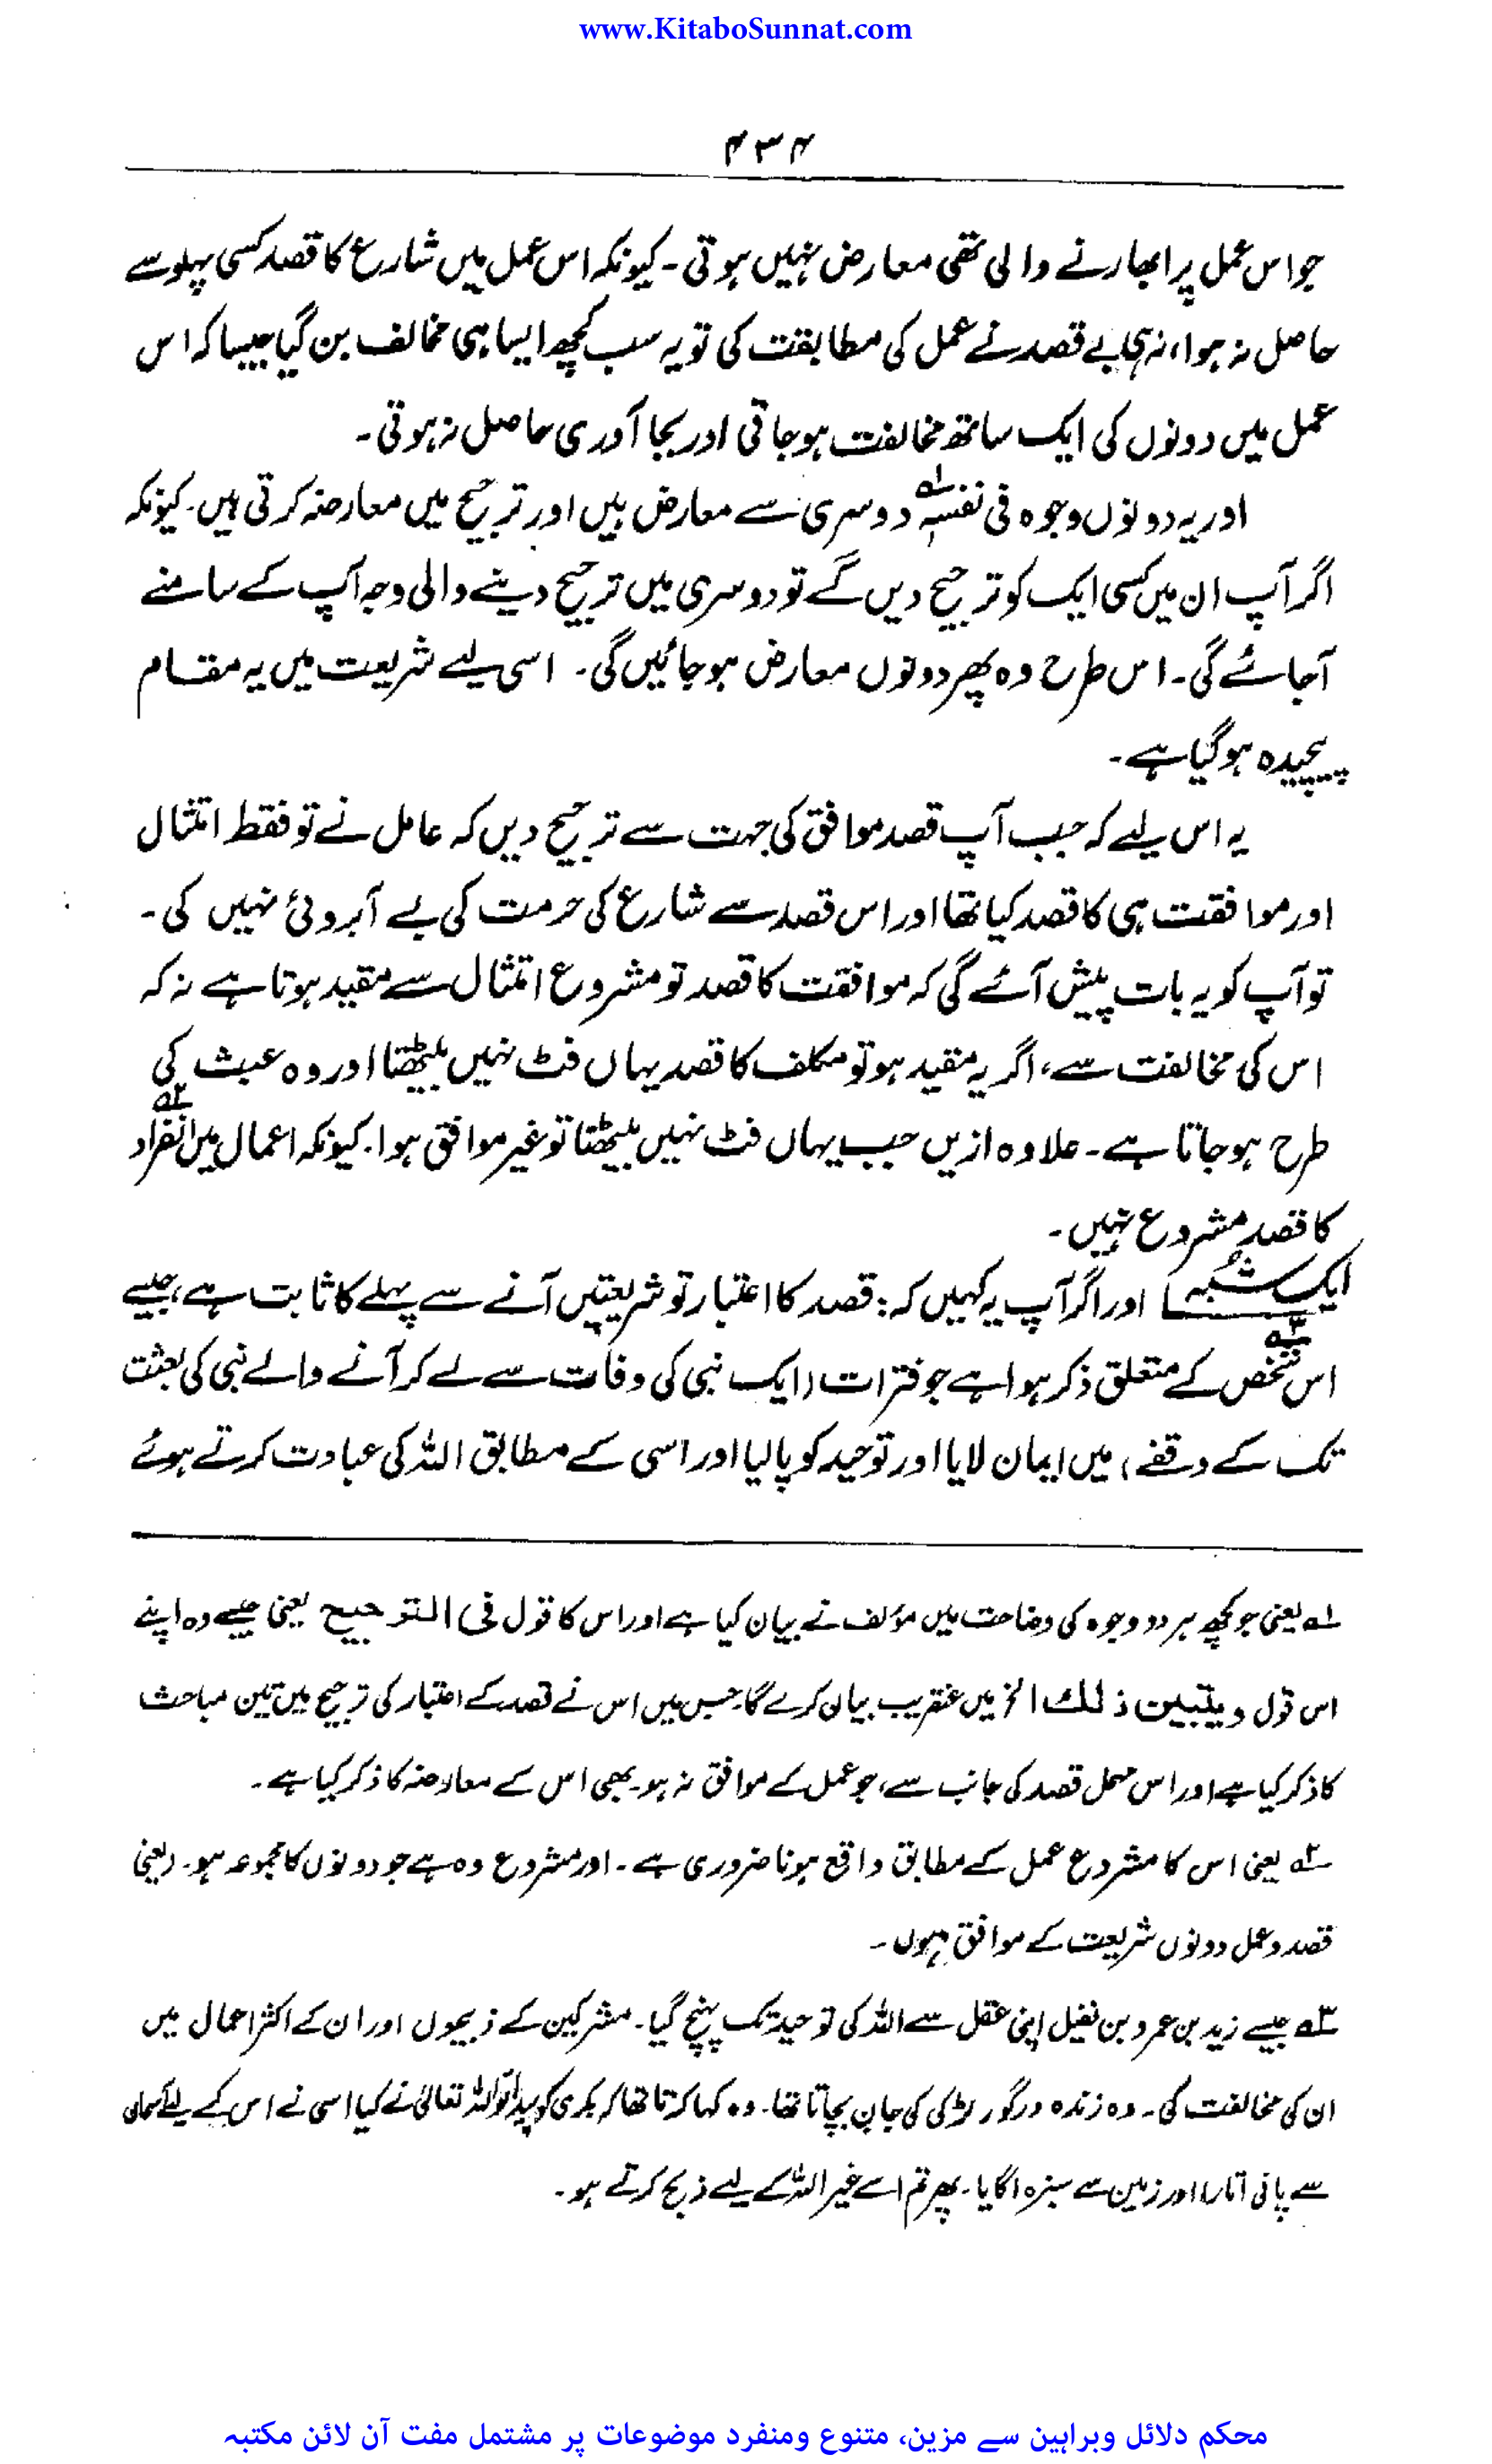 www.KitaboSunnat.com
۴۳۴
جو اس عمل پر ابھارنے والی تھی معارض نہیں ہوتی۔ کیونکہ اس عمل میں شارع کا قصد کسی پہلو سے
حاصل نہ ہوا، نہ ہی بے قصد نے عمل کی مطابقت کی تو یہ سب کچھ ایسا ہی مخالف بن گیا جیسا کہ اس
عمل میں دونوں کی ایک ساتھ مخالفت ہوجاتی اور بجا آوری حاصل نہ ہوتی۔
اور یہ دونوں وجوہ فی نفسہٖ ۱؎ دوسری سے معارض ہیں اور ترجیح میں معارضہ کرتی ہیں۔ کیونکہ
اگر آپ ان میں کسی ایک کو ترجیح دیں گے تو دوسری میں ترجیح دینے والی وجہ آپ کے سامنے
آجائے گی۔ اس طرح وہ پھر دونوں معارض ہوجائیں گی۔ اسی لیے شریعت میں یہ مقام
پیچیدہ ہوگیا ہے۔
یہ اس لیے کہ جب آپ قصد موافق کی جہت سے ترجیح دیں کہ عامل نے تو فقط امتثال
اور موافقت ہی کا قصد کیا تھا اور اس قصد سے شارع کی حرمت کی بے آبروئی نہیں کی۔
تو آپ کو یہ بات پیش آئے گی کہ موافقت کا قصد تو مشروع امتثال سے مقید ہوتا ہے نہ کہ
اس کی مخالفت سے، اگر یہ مقید ہو تو مکلف کا قصد یہاں فٹ نہیں بیٹھتا اور وہ عبث کی
طرح ہوجاتا ہے۔ علاوہ ازیں جب یہاں فٹ نہیں بیٹھتا تو غیر موافق ہوا۔ کیونکہ اعمال میں انفراد ۲؎
کا قصد مشروع نہیں۔
ایک شبہ اور اگر آپ یہ کہیں کہ: قصد کا اعتبار تو شریعتیں آنے سے پہلے کا ثابت ہے، جیسے
اس شخص ۳؎ کے متعلق ذکر ہوا ہے جو فترات (ایک نبی کی وفات سے لے کر آنے والے نبی کی بعثت
تک کے وقفے) میں ایمان لایا اور توحید کو پالیا اور اسی کے مطابق اللہ کی عبادت کرتے ہوئے
۱؎ یعنی جو کچھ ہر دو وجوہ کی وضاحت میں مؤلف نے بیان کیا ہے اور اس کا قول فی الترجیح یعنی جیسے وہ اپنے
اس قول ویتبین ذلك الخ میں عنقریب بیان کرے گا۔ جس میں اس نے قصد کے اعتبار کی ترجیح میں تین مباحث
کا ذکر کیا ہے اور اس مہمل قصد کی جانب سے، جو عمل کے موافق نہ ہو۔ بھی اس کے معارضہ کا ذکر کیا ہے۔
۲؎ یعنی اس کا مشروع عمل کے مطابق واقع ہونا ضروری ہے۔ اور مشروع وہ ہے جو دونوں کا مجموعہ ہو۔ (یعنی
قصد و عمل دونوں شریعت کے موافق ہوں۔
۳؎ جیسے زید بن عمرو بن نفیل اپنی عقل سے اللہ کی توحید تک پہنچ گیا۔ مشرکین کے ذبیحوں اور ان کے اکثر اعمال میں
ان کی مخالفت کی۔ وہ زندہ درگور لڑکی کی جان بچاتا تھا۔ وہ کہا کرتا تھا کہ بکری کو پیدا تو اللہ تعالیٰ نے کیا اسی نے اس کے لیے آسمان
سے پانی اتارا اور زمین سے سبزہ اگایا۔ پھر تم اسے غیر اللہ کے لیے ذبح کرتے ہو۔
محکم دلائل وبراہین سے مزین، متنوع ومنفرد موضوعات پر مشتمل مفت آن لائن مکتبہ